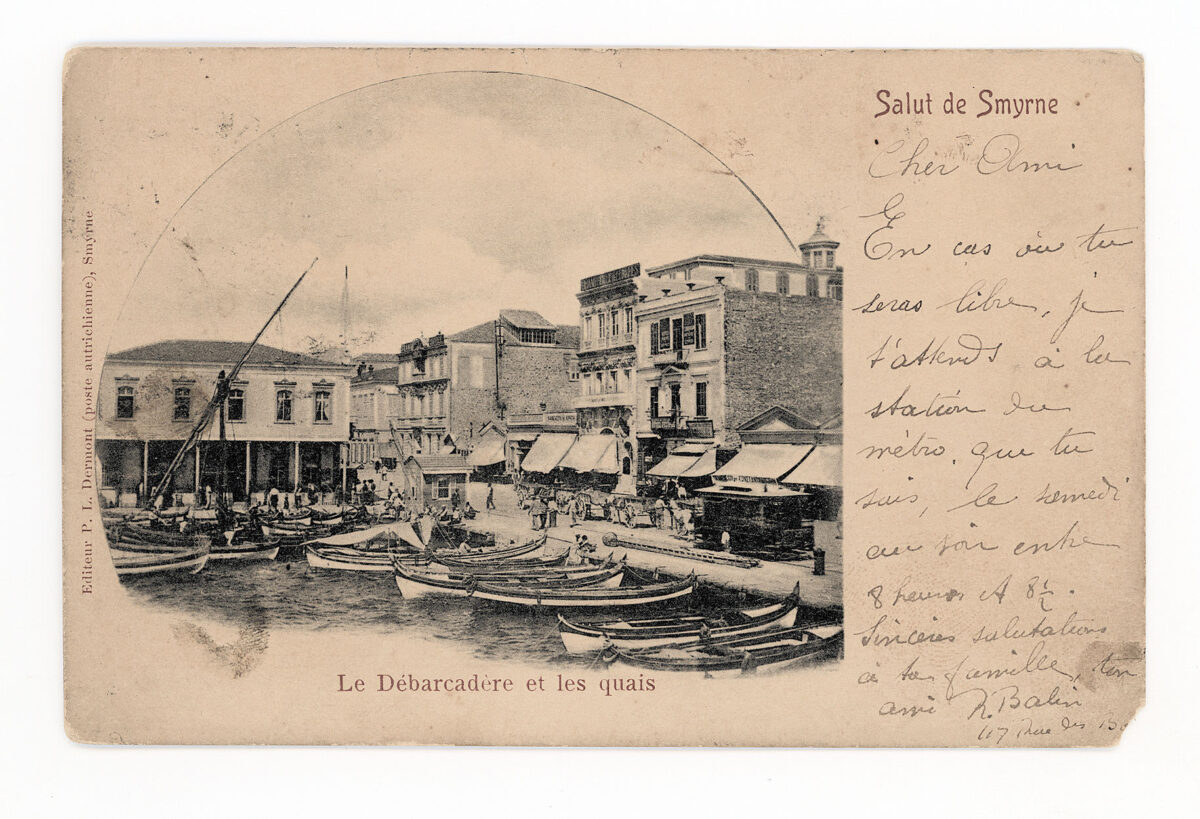 Salut de Smyrne
Cher Ami
En cas où tu
seras libre, je
t'attends à la
station du
métro, que tu
sais, le samedi
au soir entre
8 heures et 8 1/2.
Sincères salutations
à ta famille, ton
ami R. Balin
117 rue des
Le Débarcadère et les quais
Editeur P. L. Dermont (poste autrichienne), Smyrne